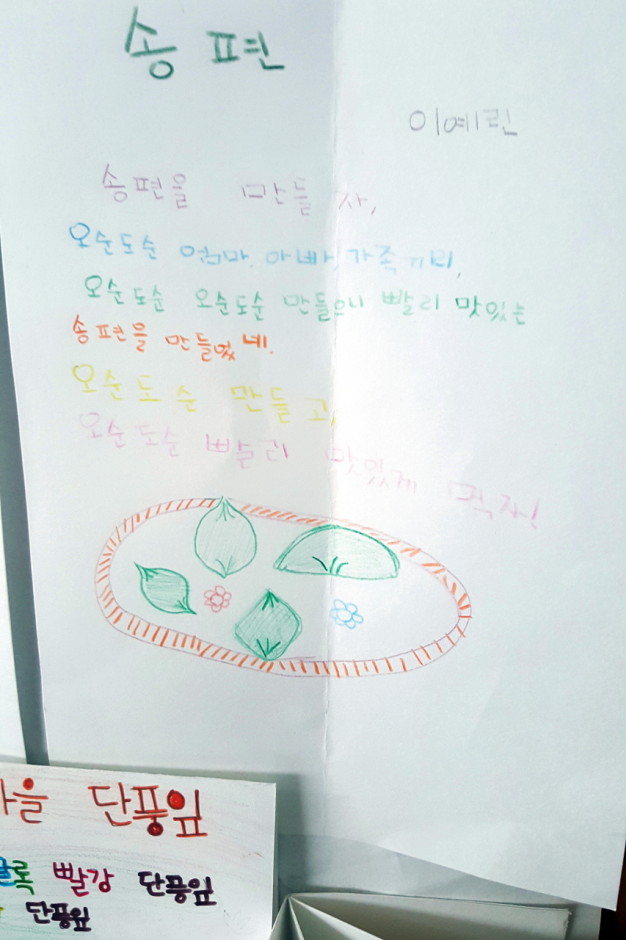 송편
이예린
송편을 만들자,
오순도순 엄마, 아빠, 가족끼리,
오순도순 오순도순 만들으니 빨리 맛있는
송편을 만들었네.
오순도순 만들고,
오순도순 빨리 맛있게 먹자!
단풍잎
빨강 단풍잎
단풍잎